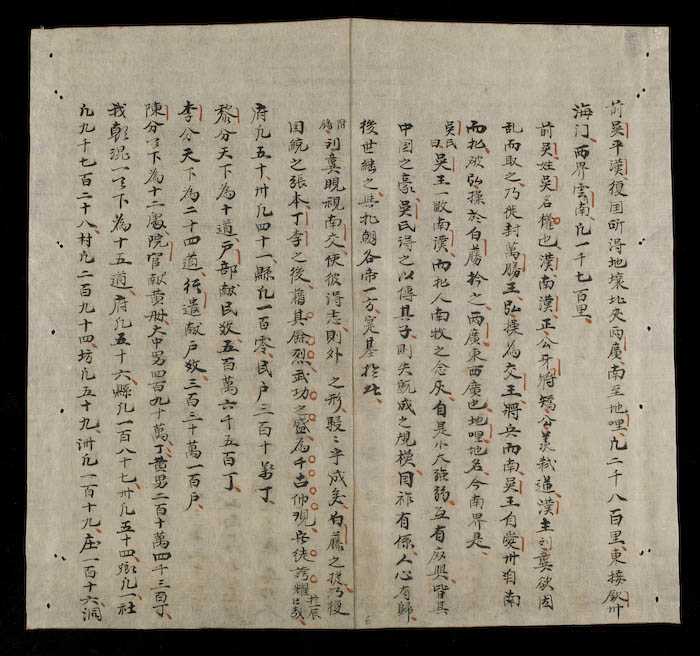 前吳平漢復国所得地壤北夾兩廣南至地哩凡二千八百里東接欽卅
海门西界雲南凡一千七百里
前吳姓吳名權也漢南漢正公牙將矯公羡弑逆漢主刘䶮欲因
乱而取之乃徙封萬勝王弘操為交王將兵而南吳王自愛卅自南
而北破弘操於白藤矜之兩廣東西廣也地哩地名今南界是
吳氏曰吳王一敗南漢而北人南牧之念灰自是小大強弱互有廢興皆其
中国之豪吳氏得之以傳其子則失既成之規模国祚有係人心有歸
後世継之與北朝各帝一方寔基於此
附偽刘䶮覘視南交使彼得志則外之形駸〻乎成矣白藤之捷乃復
国統之張本丁李之後藉其餘烈武功之盛為千古仰觀豈徒誇耀於一辰已哉
府凡五十卅凡四十一縣凡一百零民户三百十萬丁
黎分天下為十道户部献民数五百萬六千五百丁
李分天下為二十四道行遣献户数三百三十萬一百户
陳分天下為十二處院官献黄册大中男四百九十萬丁黄男二百十萬四千三百丁
我朝混一天下為十五道府凡五十六縣凡一百八十七卅凡五十四鄉凡一社
凡九千七百二十八村凡二百九十四坊凡五十九洲凡一百十九庄一百十六洞